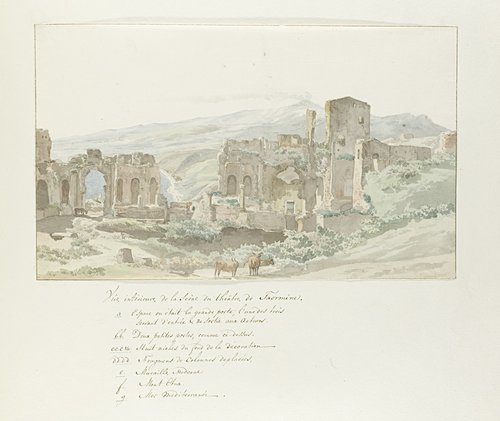 Vüe intérieure de la Scène du théâtre de Taormine.
a Espace ou était la grande porte, l'une des trois
servant d'entrée & de sortie aux Acteurs.
bb Deux petites portes, comme ci dessus.
cccc Huit niches du fond de la Décoration
dddd Fragment de Colonnes déplacées.
e Muraille Moderne
f Mont Etna
g Mer Méditerranée.